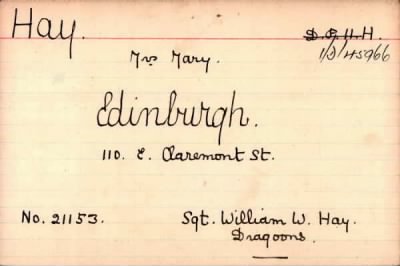 Hay.
D.P.U.H.
1/D/45966
Mrs Mary.
Edinburgh.
110. E. Claremont St.
No. 21153.
Sgt. William W. Hay.
Dragoons.